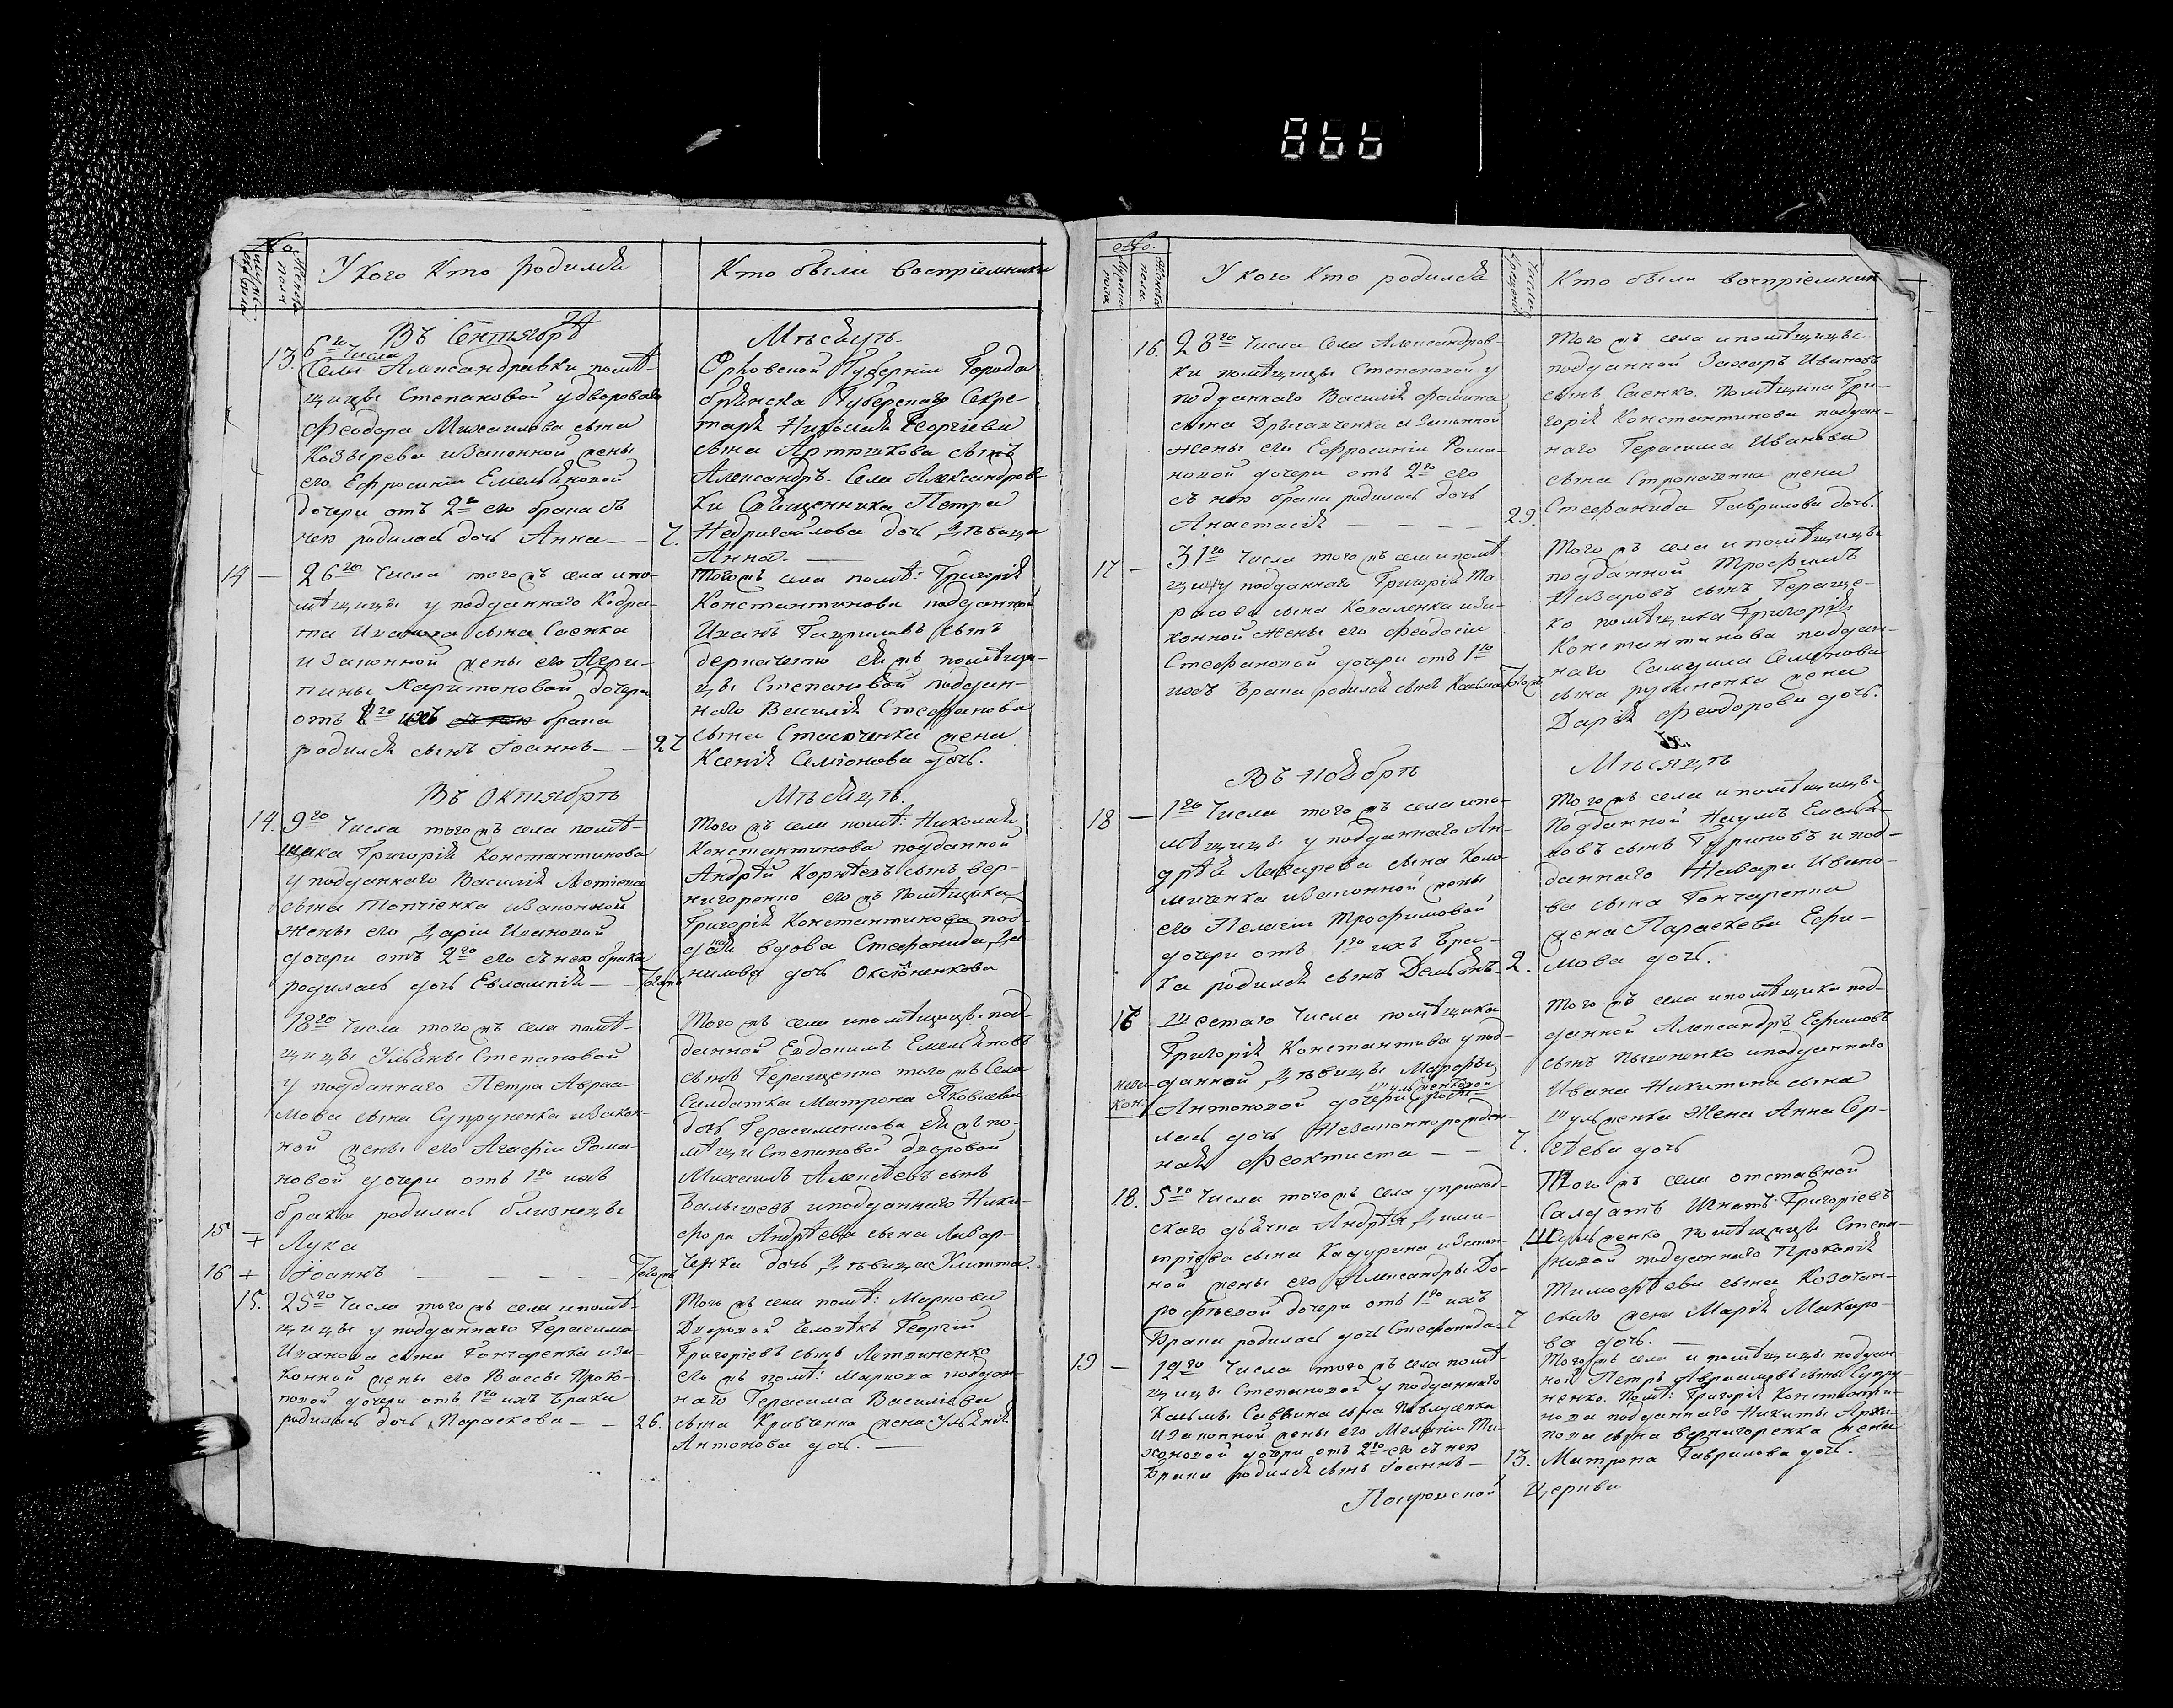 866
No.
У кого Кто родился
Кто были воспріемники
Въ Сентябрѣ
Мѣсяцѣ.
13. 6го Числа
Села Александравки помѣ-
щицы Степановой у двороваго
Феодора Михаилова сына
Козырева и законной жены
его Ефросиніи Емельяновой
дочери отъ 2го его брака съ
нею родилась дочь Анна — 7.
Орловской Губерніи Города
брянска Губернскаго Секре-
таря Николая Георгіева
сына Артюхова сынъ
Александръ. Села Александров-
ки Священника Петра
Недригайлова дочь Дѣвица
Анна. —
14 — 26го Числа того жъ села и по-
мѣщицы у подданнаго Кодра-
та Иванова сына Саенка
и законной жены его Агри-
пины Харитоновой дочери
отъ 2го ихъ брака
родился сынъ Іоаннъ — 27
Тогожъ села помѣ: Григорія
Константинова подданной
Иванъ Гаврилавъ сынъ
деркаченко ея жъ помѣщи-
цы Степановой поддан-
наго Василія Стефанова
сына Стасюченка жена
Ксенія Семіонова дочь.
Въ Октябрѣ
Мѣсяцѣ.
14. 9го Числа того жъ села помѣ-
щика Григорія Константинова
у подданнаго Василія
сына Топчіенка и законной
жены его Даріи Ивановой
дочери отъ 2го его съ нею брака
родилась дочь Евлампія — Тогожъ
Того жъ села помѣ: Николая
Константинова подданной
Андрѣй Корнѣевъ сынъ вер-
нигоренко его жъ Помѣщика
Григорія Константинова под-
дан вдова Стефанида Да-
нилова дочь Оксюненкова
18го Числа того жъ села помѣ-
щицы Ульяны Степановой
у подданнаго Петра Авраа-
мова сына Супруненка и закон-
ной жены его Агафіи Рома-
новой дочери отъ 1го ихъ
брака родились близнецы
15 + Лука
16 + Іоаннъ — — — — Тогожъ
Того жъ села и помѣщицы под-
данной Евдокимъ Емельяновъ
сынъ Геращенко того жъ Села
Салдатка Матрона Яковлева
дочь Герасименкова ея жъ по-
мѣщи Степановой дворовой
Михаилъ Алексѣевъ сынъ
и подданнаго Ники-
фора Андрѣева сына
ченка дочь Дѣвица
15. 25го Числа того жъ села и помѣ-
щицы у подданнаго Герасима
Иванова сына Гончаренка и за-
конной жены его Вассы Проко-
повой дочери отъ 1го ихъ брака
родилась дочь Параскова — — 26.
Того жъ села помѣ: Маркова
Дворовой человѣкъ Георгій
Григоріевъ сынъ Летвиненко
его жъ помѣ: Маркова поддан-
наго Герасима Василіева
сына Кравченка жена Ульянія
Антонова дочь. —
No.
У кого Кто родился
Кто были воспріемник
16. 28го Числа Села Александров-
ки помѣщицы Степановой у
подданнаго Василія Фомина
сына и законной
жены его Ефросиніи Рома-
новой дочери отъ 2го его
съ нею брака родилась дочь
Анастасія — — — — 29.
Того жъ села и помѣщицы
подданной Захаръ Ивановъ
сынъ Саенко. Помѣщика Гри-
горія Константинова поддан-
наго Герасима Иванова
сына жена
Стефанида Гаврилова дочь.
17 — 31го Числа того жъ села и помѣ-
щицу подданнаго Григорія Та-
расова сына Коваленка и за-
конной жены его Феодосіи
Стефановой дочери отъ 1го
ихъ брака родился сынъ Касьма Тогожъ
Того жъ села и помѣщицы
подданной Трофимъ
Назаровъ сынъ Гераще-
ко помѣщика Григорія
Константинова поддан-
наго Самуила Семенова
сына жена
Дарія Феодорова дочь.
Въ ноябрѣ
Мѣсяцѣ
18 — 1го Числа того жъ села и по-
мѣщицы у подданнаго Ан-
дрѣя Лазарева сына Коло-
миченка и законной жены
его Пелагіи Трофимовой
дочери отъ 1го ихъ бра-
ка родился сынъ Демьянъ. 2.
Того жъ села и помѣщицы
Подданной Наумъ Емелья-
новъ сынъ и под-
даннаго Назара Ивано-
ва сына Гончаренка
жена Параскева Ефи-
мова дочь.
незакон-
Шестаго Числа помѣщика
Григорія Константинова у под-
данной Дѣвицы Марфы
Антоновой дочери роди-
лась дочь Незаконнорожден-
ная Феоктиста — — 7.
Того жъ села и помѣщика под-
данной Александръ Ефимовъ
сынъ и подданнаго
Ивана Никитина сына
Шульженка Жена Анна Ер-
дочь
18. 5го Числа того жъ села у приход-
скаго дьячка Андрѣя Дими-
тріева сына Кадурина и закон-
ной жены его Александры До-
рофѣевой дочери отъ 1го ихъ
брака родилась дочь Стефанида — 7
Того жъ села отставной
Салдатъ Игнатъ Григоріевъ
Шульженко помѣщицы Степа-
новой подданнаго Прокопія
Тимофѣева сына Козачан-
скаго жена Марія Макаро-
ва дочь. —
19 — 12го Числа того жъ села помѣ-
щицы Степановой у подданнаго
Касьмы Саввина сына Павленка
и законной жены его Меланіи Ти-
хоновой дочери отъ 2го его съ нею
брака родился сынъ Іоаннъ — 13.
Тогожъ села и помѣщицы поддан-
ной Петръ Авраамовъ сынъ Супру-
ненко. Помѣ: Григорія Константи-
нова подданнаго Никиты Архи-
пова сына вернигоренка жена
Матрона Гаврилова дочь.
церкви